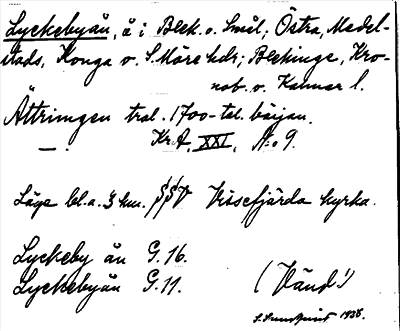 Lyckebyån, å i Blek. o. Smål., Östra, Medel-
stads, Konga o. S. Möre hdr; Blekinge, Kro-
nob. o. Kalmar l.
Ättringen trol. 1700-tal. början.
— . Kr.A, XXI, N:o 9.
Läge bl.a. 3 km. Vissefjärda kyrka.
Lyckeby ån G. 16.
Lyckebyån G. 11. (Vänd!)
1938.